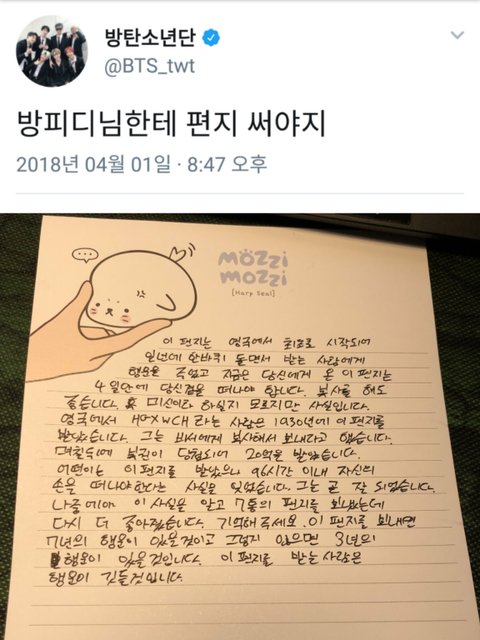 방탄소년단
@BTS_twt
방피디님한테 편지 써야지
2018년 04월 01일 · 8:47 오후
mözzi
mozzi
[Harp Seal]
이 편지는 영국에서 최초로 시작되어
일년에 한바퀴 돌면서 받는 사람에게
행운을 주었고 지금은 당신에게 온 이 편지는
4일안에 당신곁을 떠나야 합니다. 복사를 해도
좋습니다. 혹 미신이라 하실지 모르지만 사실입니다.
영국에서 HGXWCH라는 사람은 1930년에 이 편지를
받았습니다. 그는 비서에게 복사해서 보내라고 했습니다.
며칠뒤에 복권이 당첨되어 20억을 받았습니다.
어떤이는 이 편지를 받았으나 96시간 이내 자신의
손을 떠나야 한다는 사실을 잊었습니다. 그는 곧 잘 되었습니다.
나중에야 이 사실을 알고 7통의 편지를 보냈는데
다시 더 좋아졌습니다. 기억해주세요. 이 편지를 보내면
7년의 행운이 있을것이고 그렇지 않으면 3년의
행운이 있을것입니다. 이 편지를 받는 사람은
행운이 깃들것입니다.